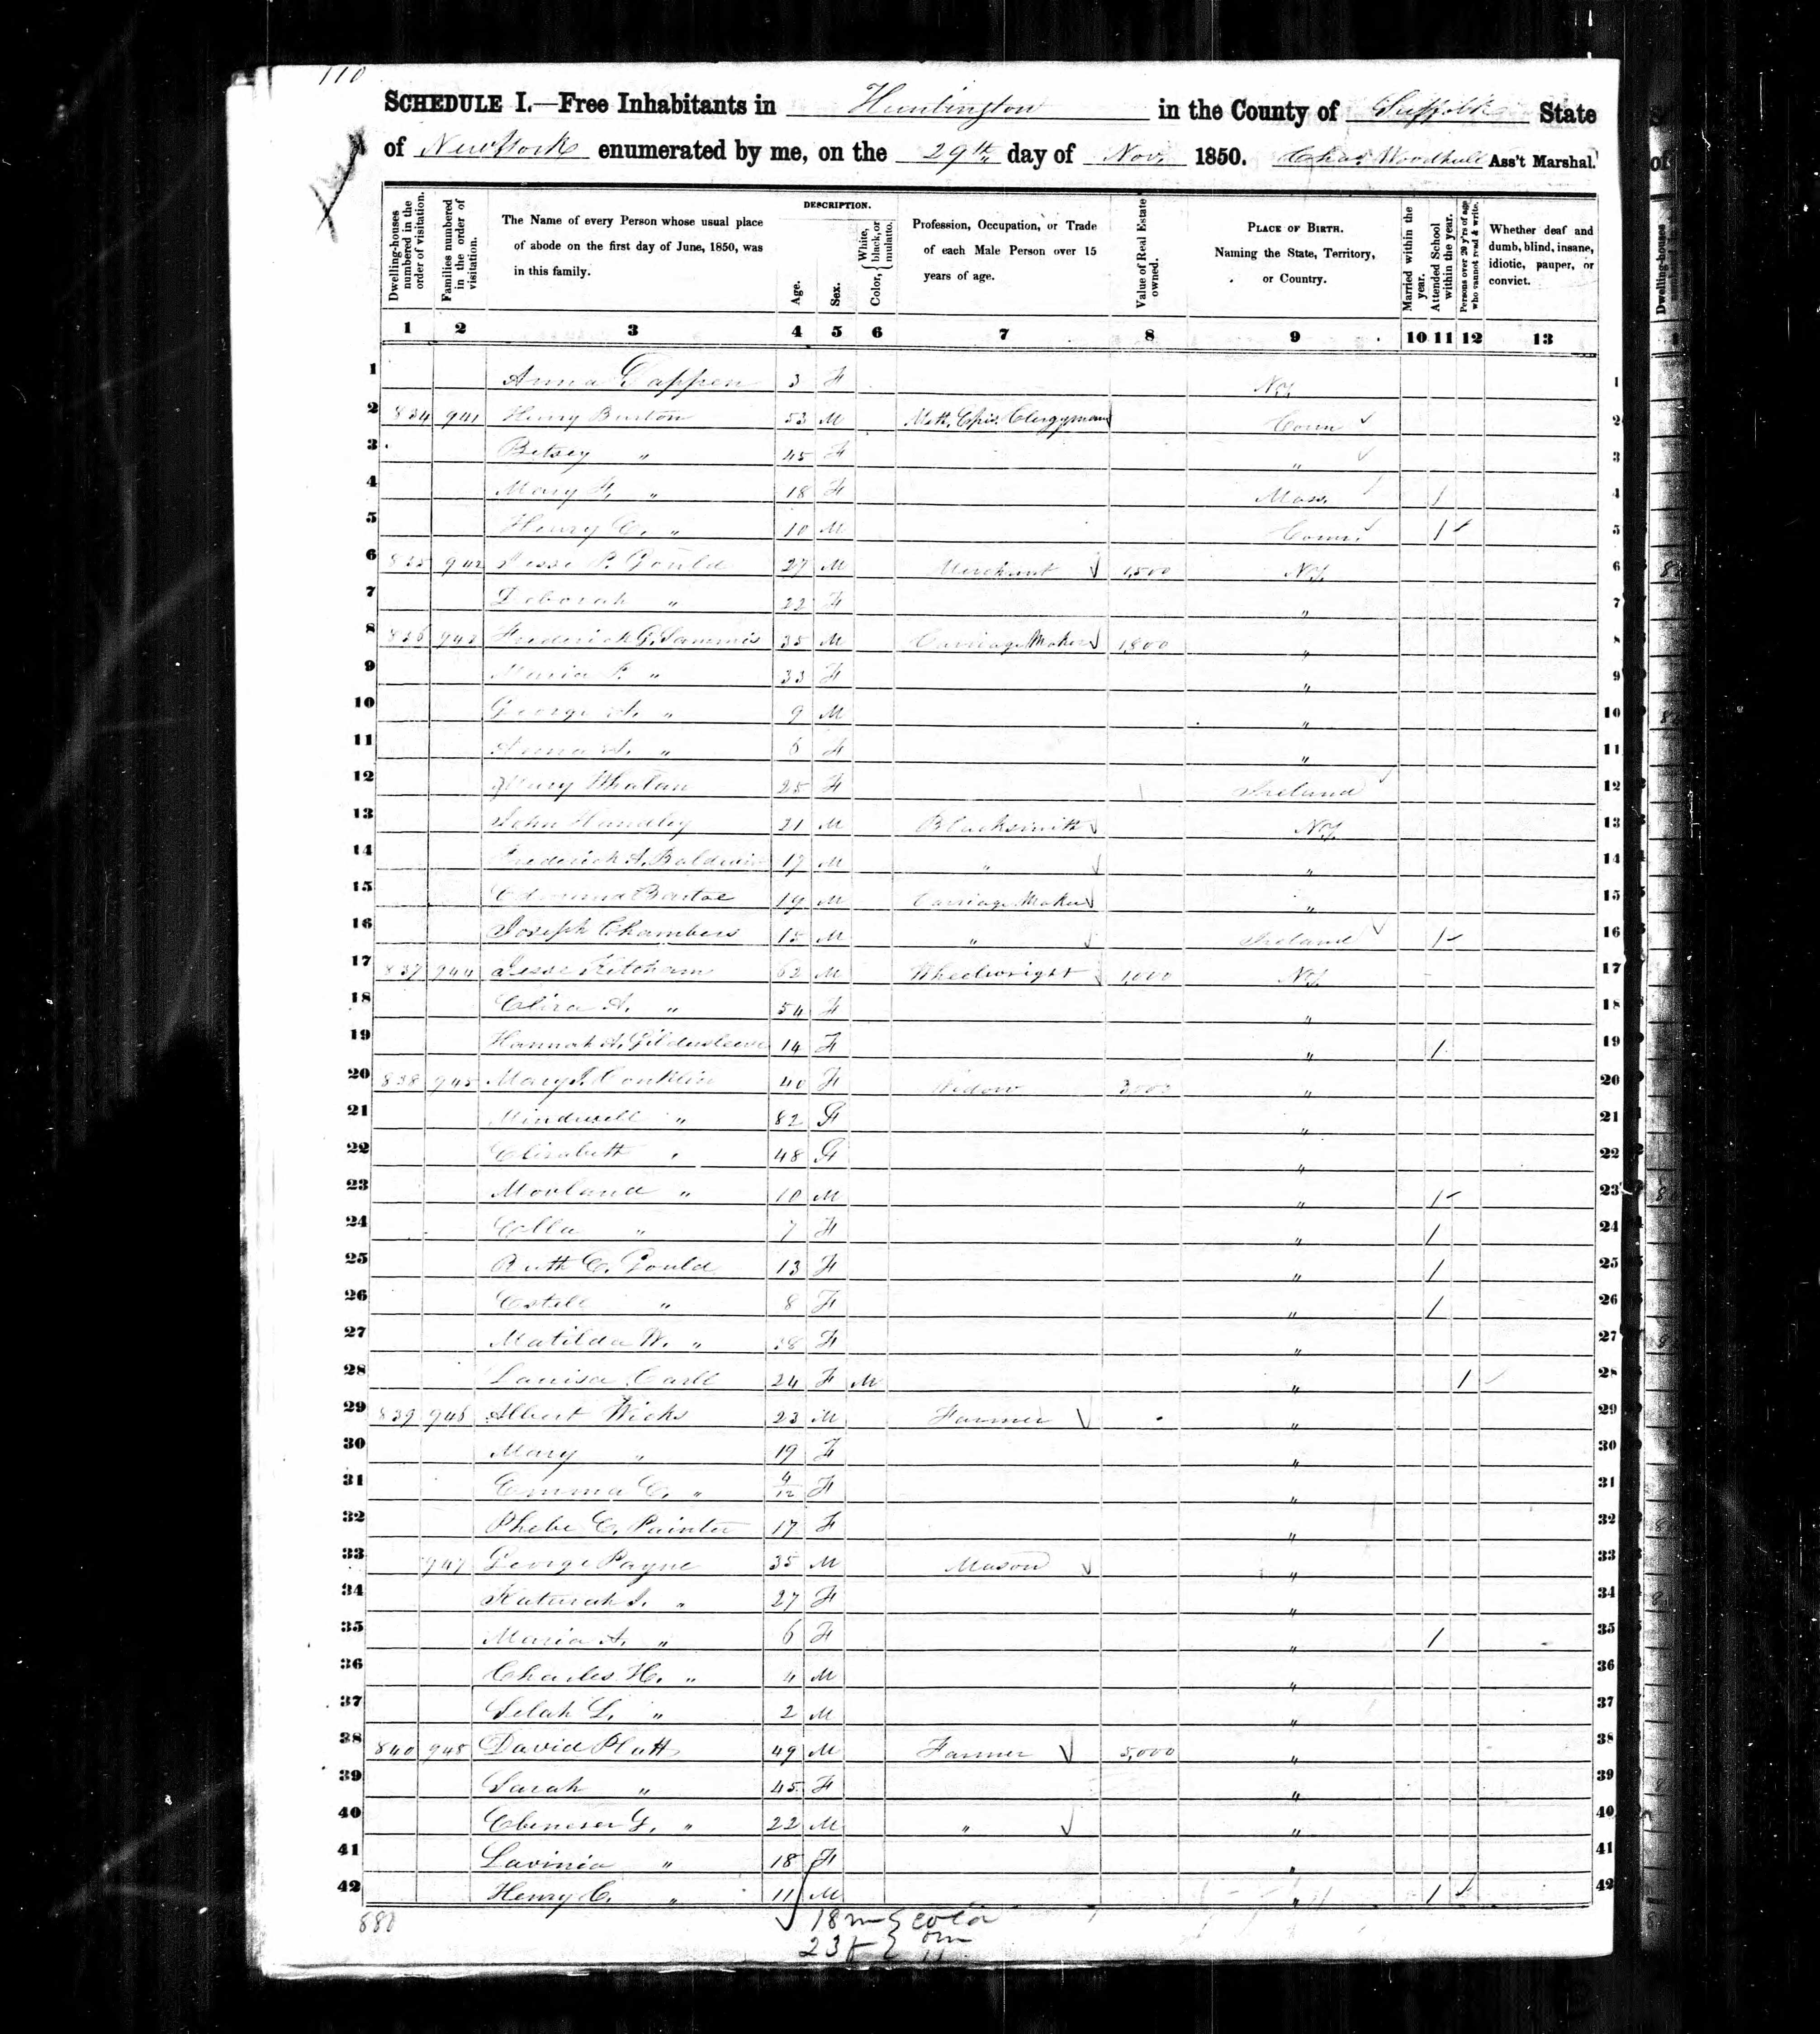 110
SCHEDULE I.—Free Inhabitants in Huntington in the County of Suffolk State
of New York enumerated by me, on the 29th day of Nov. 1850. Chas. Woodhull Ass't Marshal.
Dwelling-houses numbered in the order of visitation.
Families numbered in the order of visitation.
The Name of every Person whose usual place of abode on the first day of June, 1850, was in this family.
DESCRIPTION.
Age.
Sex.
Color, { White, black, or mulatto.
Profession, Occupation, or Trade of each Male Person over 15 years of age.
Value of Real Estate owned.
PLACE OF BIRTH. Naming the State, Territory, or Country.
Married within the year.
Attended School within the year.
Persons over 20 y'rs of age who cannot read & write.
Whether deaf and dumb, blind, insane, idiotic, pauper, or convict.
1 2 3 4 5 6 7 8 9 10 11 12 13
1 Anna 3 F N.Y. 1
2 834 941 Henry Burton 53 M Meth. Epis. Clergyman Conn 2
3 Betsey " 45 F " 3
4 Mary F. " 18 F Mass. / 4
5 Henry C. " 10 M Conn. / 5
6 835 942 Jesse P. Gould 27 M Merchant 1,500 N.Y. 6
7 Deborah " 22 F " 7
8 836 943 Frederick G. Sammis 35 M Carriage Maker 1,800 " 8
9 Maria " 33 F " 9
10 George " 9 M " 10
11 Anna " 6 F " 11
12 Mary Whalan 25 F Ireland 12
13 John Handley 21 M Blacksmith N.Y. 13
14 Frederick A. Baldwin 17 M " " 14
15 Edmund 19 M Carriage Maker " 15
16 Joseph Chambers 15 M " Ireland / 16
17 837 944 Jesse Ketcham 62 M Wheelwright 1,000 N.Y. 17
18 Eliza A. " 54 F " 18
19 Hannah A. Gildersleeve 14 F " / 19
20 838 945 Mary Conklin 40 F Widow 3,000 " 20
21 Mindwell " 82 F " 21
22 Elizabeth " 48 F " 22
23 Morland " 10 M " / 23
24 " 7 F " / 24
25 Ruth C. Gould 13 F " / 25
26 Estell " 8 F " / 26
27 Matilda W. " F " 27
28 Louisa Carll 24 F M " / 28
29 839 946 Albert Wicks 23 M Farmer " 29
30 Mary " 19 F " 30
31 Emma C. " 4/12 F " 31
32 Phebe C. Painter 17 F " 32
33 947 George Payne 35 M Mason " 33
34 Katurah " 27 F " 34
35 Maria A. " 6 F " / 35
36 Charles H. " 4 M " 36
37 Selah L. " 2 M " 37
38 840 948 David Platt 49 M Farmer 5,000 " 38
39 Sarah " 45 F " 39
40 Ebenezer G. " 22 M " " 40
41 Lavinia " 18 F " 41
42 Henry C. " 11 M " / 42
18 m
23 f